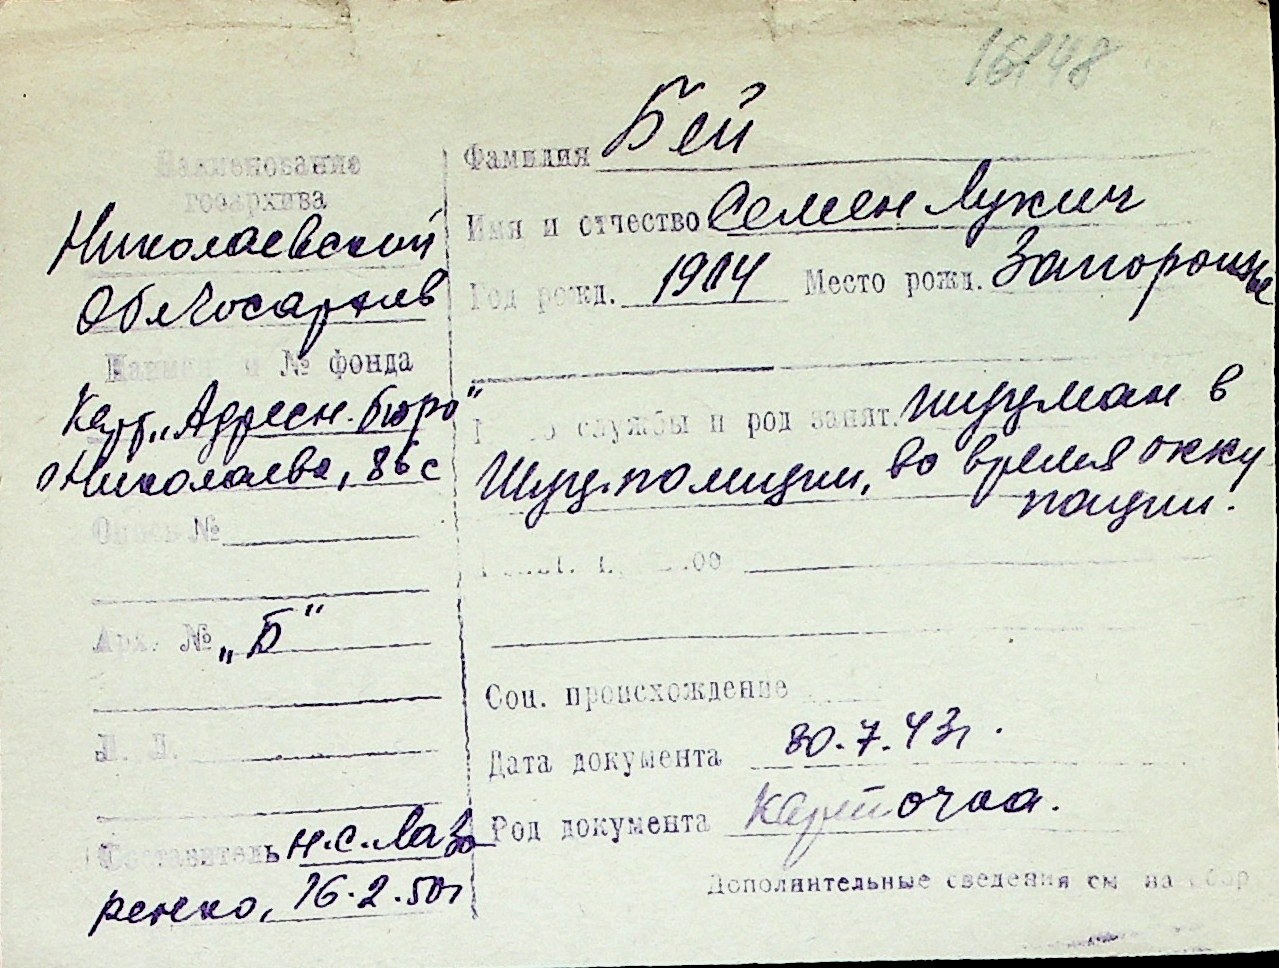 16148
Наименование
госархива
Николаевский
Облгосархив
Наимен. и № фонда
Карт. „Адресн. бюро"
г Николаева, 86 с
Опись №
Арх. № „Б"
Л. Л.
Составитель Н.С. Лаза
ренко, 16.2.50г
Фамилия Бей
Имя и отчество Семен Лукич
Год рожд. 1914 Место рожд. Запорожье
службы и род занят. шуцман в
Шуц. полиции, во время окку
пации.
Соц. происхождение
Дата документа 30.7.43г.
Род документа карточка.
Дополнительные сведения см на обор